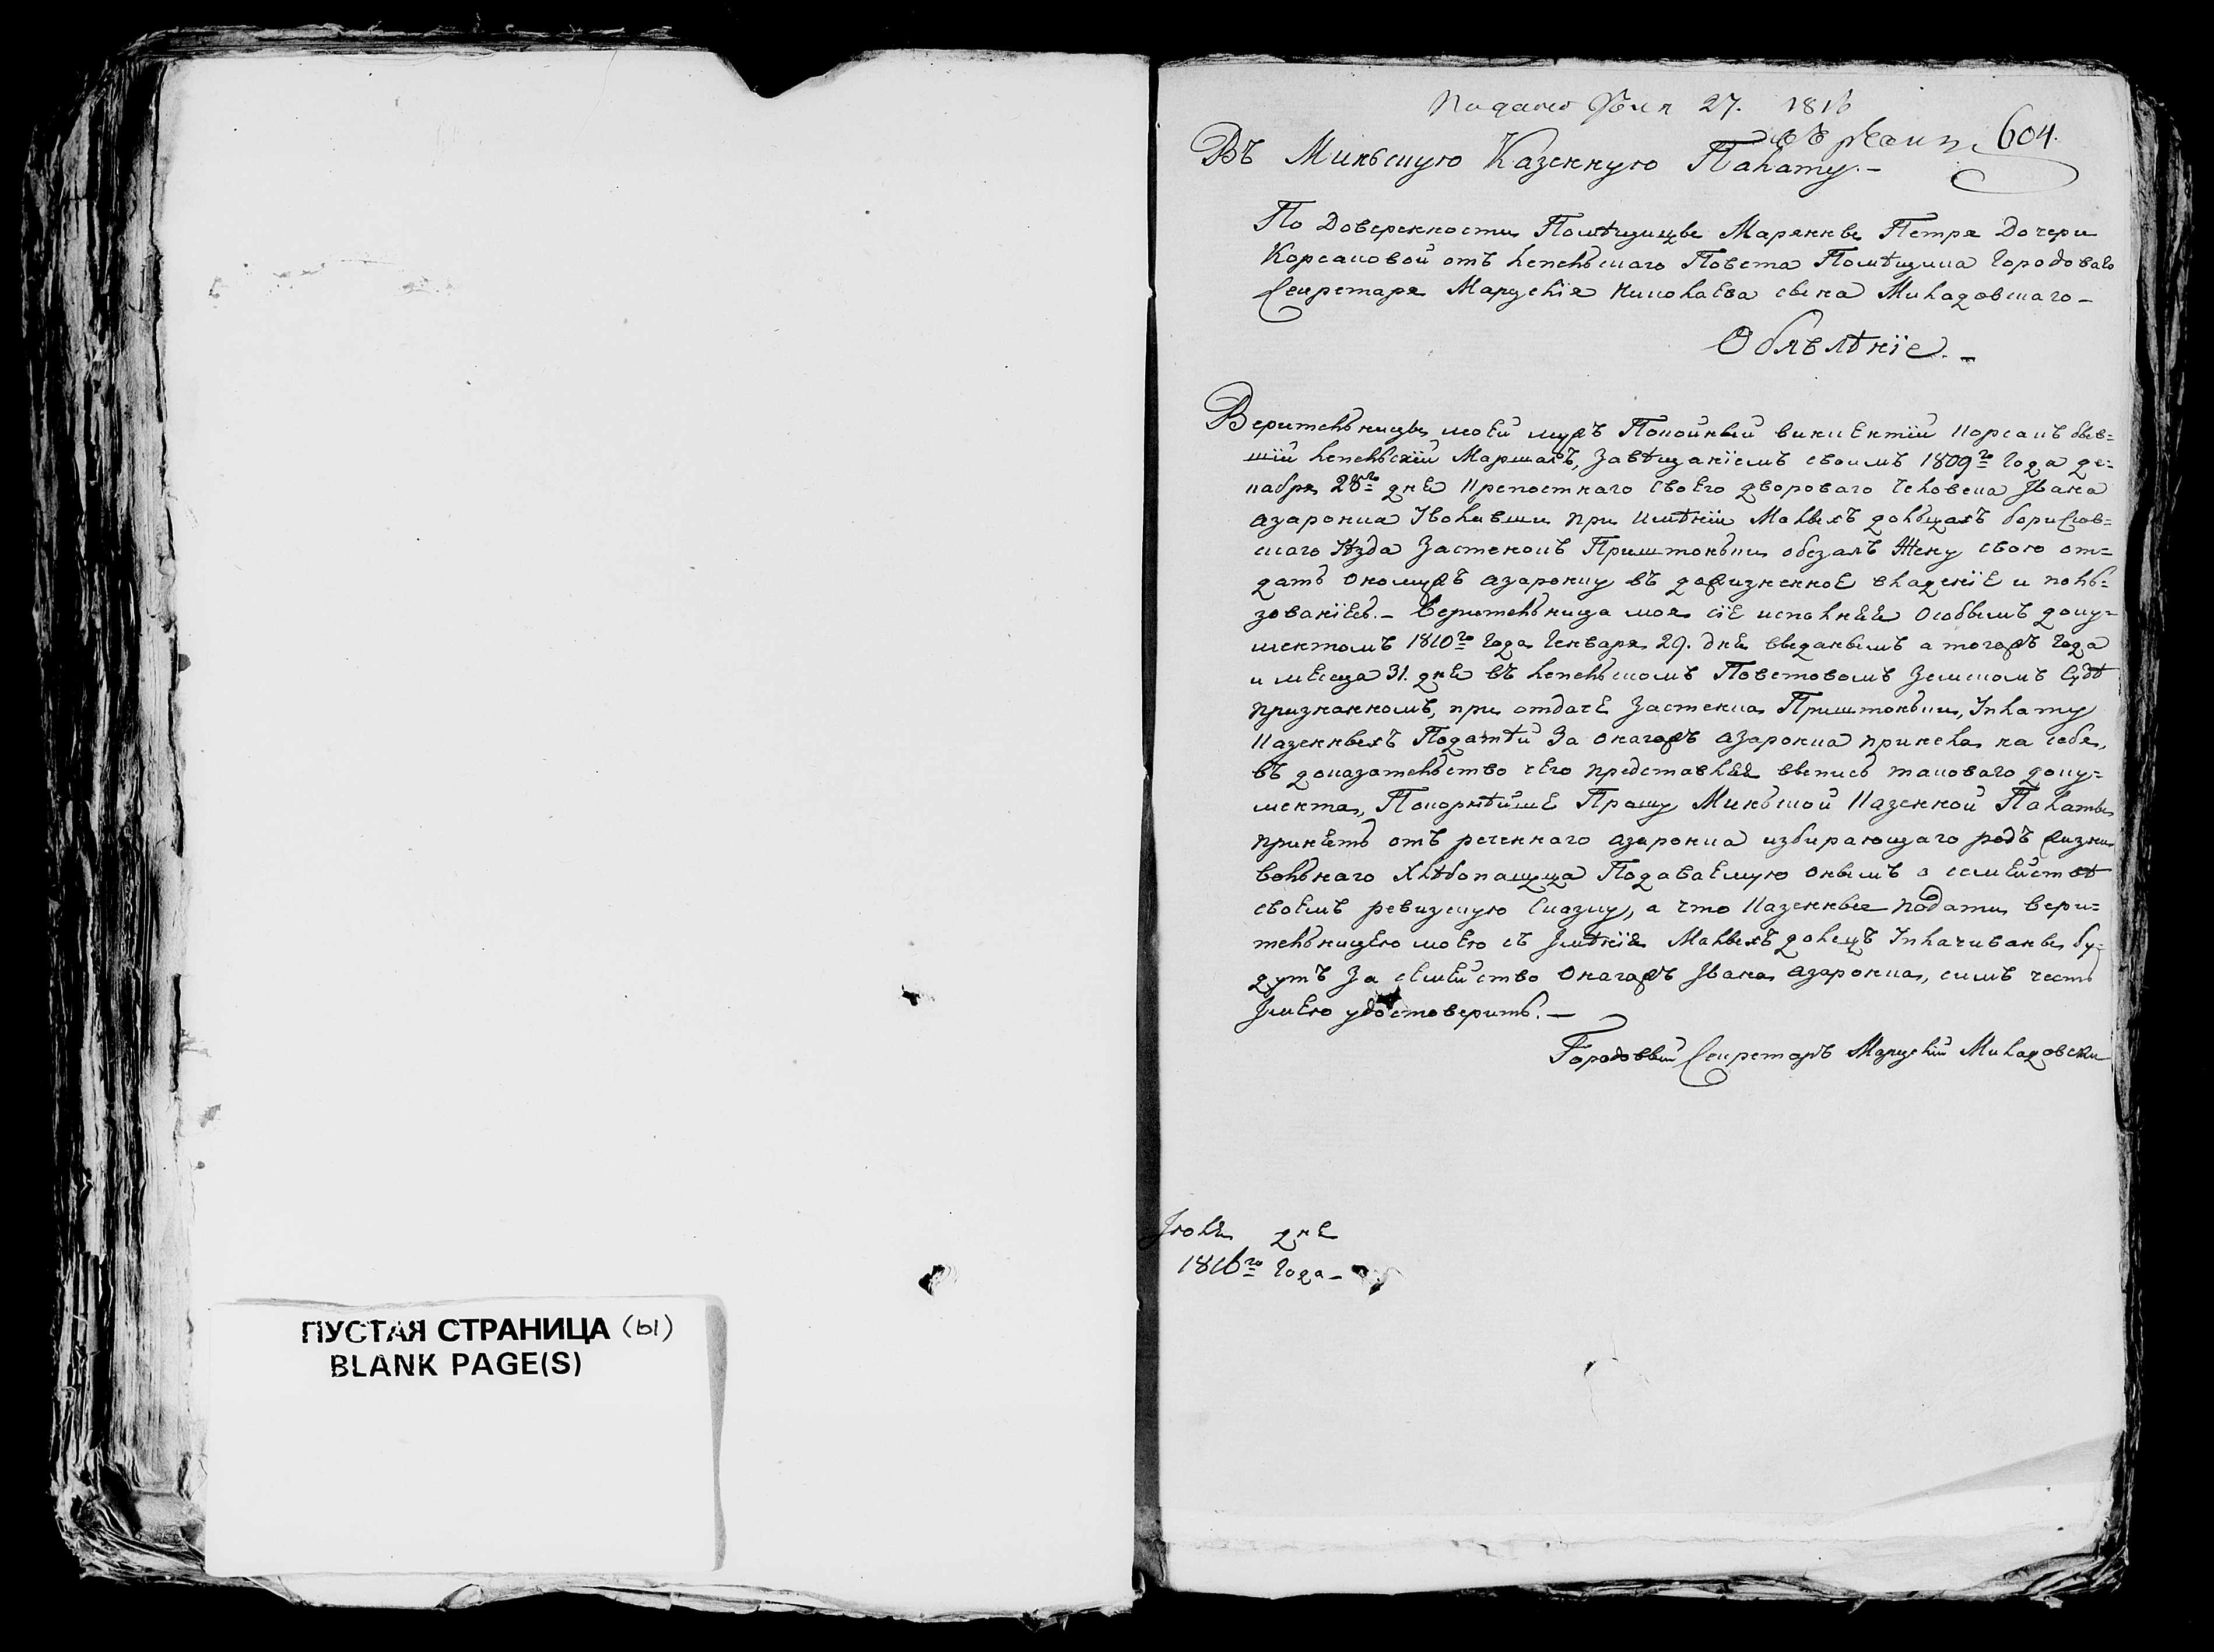 Подано Юля 27. 1816
604.
Въ Миньскую Казенную Палату.–
По Доверенности Помѣщицы Марянны Петра Дочери
Корсаковой отъ Лепельскаго Повета Помѣщика Городоваго
Секретаря Марцелія Николаева сына Миладовскаго–
Объявлѣніе.–
Верительницы моей мужъ Покойный викиентій Корсакъ быв=
шій Лепельскій Маршалъ, Завѣщаніемъ своимъ 1809го Года де=
кабря 28го дня Крепостнаго своего двороваго человека Ивана
Азаронка Уволивши при Имѣніи Малыхъ дольцахъ Борисов=
скаго Уѣзда Застенокъ Приштокъки обезалъ Жену свою от=
дать ономужъ Азаронку въ дожизненное владеніе и поль=
зованіе.– Верительница моя сіе исполняя Особымъ доку=
ментомъ 1810го Года Генваря 29. дня выданымъ а тогожъ Года
и месяца 31. дня въ Лепельскомъ Поветовомъ Земскомъ Судѣ
признанномъ, при отдаче Застенка Приштокъки, Уплату
Казенныхъ Податѣй За онагожъ Азаронка приняла на себя,
въ доказательство чего представляя выпись таковаго доку=
мента, Покорнѣйше Прошу Миньской Казенной Палаты
принять отъ реченнаго Азаронка избирающаго родъ жизни
вольнаго Хлѣбопашца Подаваемую онымъ о семействѣ
своемъ ревизскую Сказку, а что Казенные подати вери=
тельницею моею съ Имѣнія Малыхъ долецъ Уплачиваны бу=
дутъ За семейство Онагожъ Ивана Азаронка, симъ честь
Имею удостоверить.–
Городовый Секретарь Марцелій Миладовски
Июля дня
1816го Года–
ПУСТАЯ СТРАНИЦА (Ы)
BLANK PAGE(S)